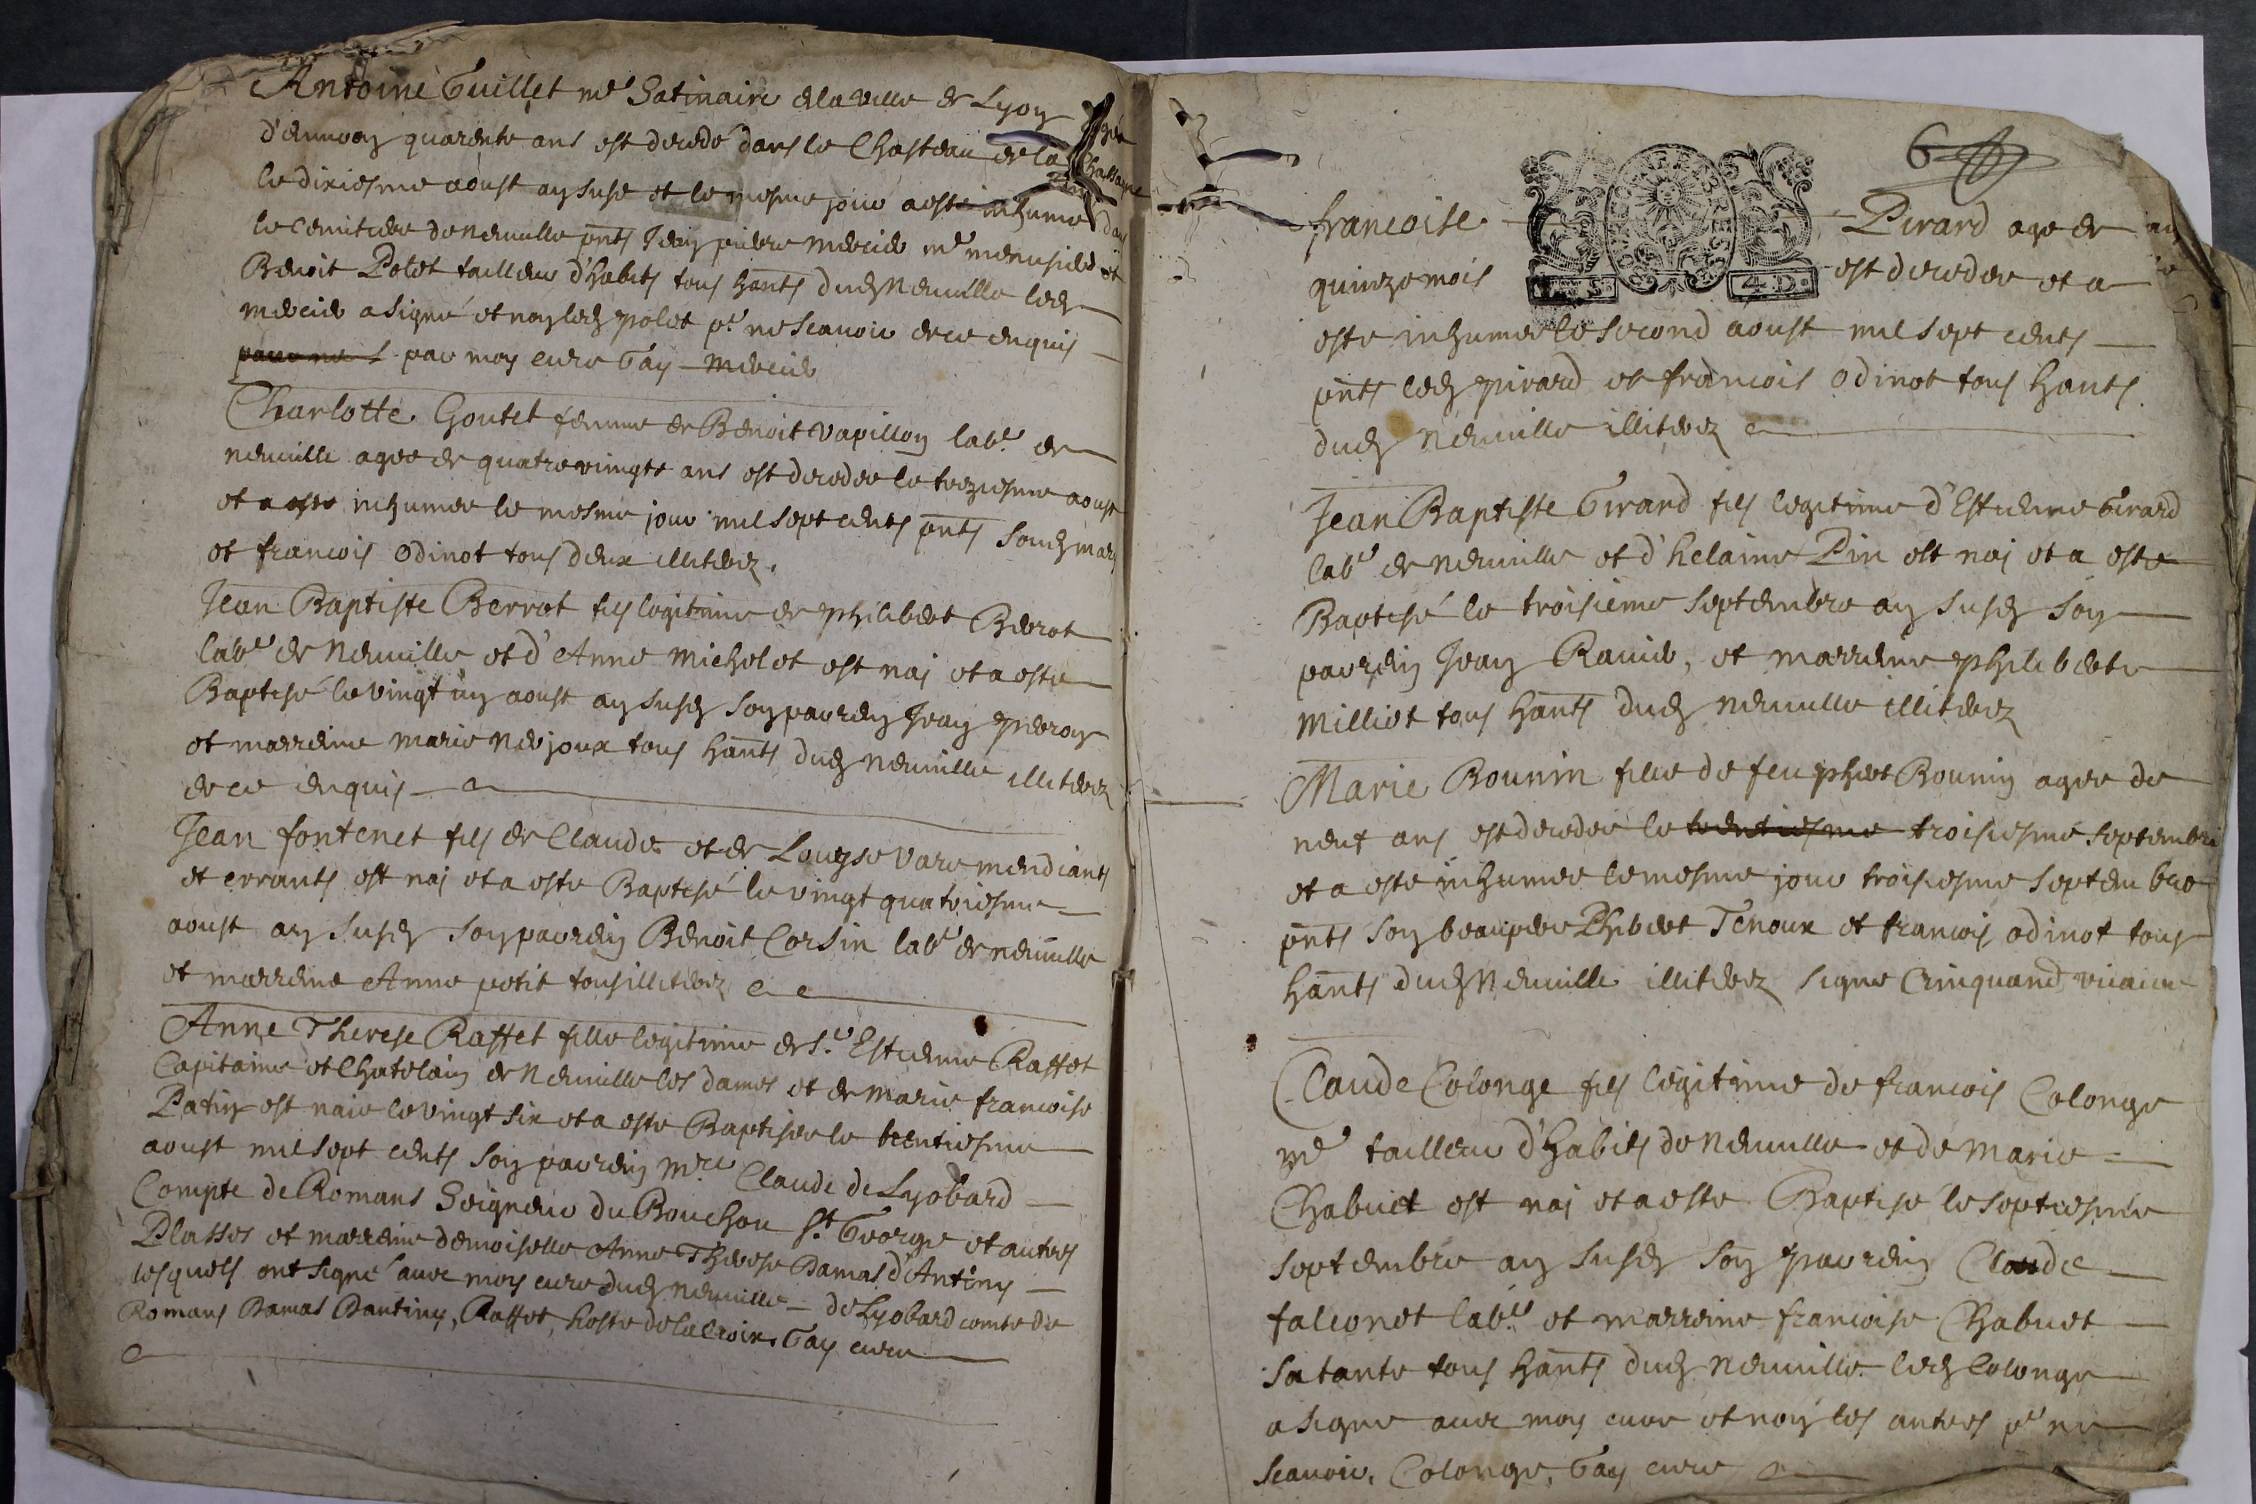 Antoine Guillet me Satinaire de la ville de Lyon agé
d'environ quarente ans est decedé dans le Chasteau de la Chassagne
le dixiesme aoust an suse et le mesme jour a esté inhumé dans
le Cemitiere de Neuville pnts Jean pierre Mercier me menusier et
Benoit Polet tailleur d'habits tous hants dud Neuville led
mercier a signé et non led polet pr ne scavoir de ce enquis
par moy curé Gay Mercier
Charlotte Goutet femme de Benoit Vapillon labr de
neuville agee de quatre vingts ans est decedee le treziesme aoust
et a esté inhumee le mesme jour mil sept cents pnts soud mary
et francois Odinot tous deux illiterez.
Jean Baptiste Berrot fils legitime de philibert Berrot
labr de Neuville et d'Anne Michelet est nai et a esté
Baptisé le vingt un aoust an susd son parrein Jean perron
et marreine marie Nerjoux tous hants dud Neuville illiterez
de ce enquis
Jean fontenet fils de Claude et de Louyse Vare mendiants
et errants est nai et a esté Baptisé le vingt quatriesme
aoust an susd son parrein Benoit Corsin labr de neuville
et marreine Anne petit tous illiterez
Anne Therese Raffet fille legitime de Sr Estienne Raffet
Capitaine et Chatelain de Neuville les dames et de Marie francoise
Patin est naie le vingt six et a esté Baptisee le trentiesme
aoust mil sept cents son parrein Mre Claude de Lyobard
Compte de Romans Seigneur du Bouchou St George et autres
Plasses et marreine demoiselle Anne Therese Damas d'Antiny
lesquels ont signé avec moy curé dud Neuville de Lyobard comte de
Romans Damas Dantiny, Raffet, hoste de la Croix, Gay curé
6
francoise Pirard agee de
quinze mois est decedee et a
esté inhumee le second aoust mil sept cents
pnts led pirard et francois Odinot tous hants
dud Neuville illiterez
Jean Baptiste Girard fils legitime d'Estienne Girard
labr de Neuville et d'helaine Pin est nai et a esté
Baptisé le troisieme septembre an susd son
parrein Jean Ravier, et marreine philiberte
Milliot tous hants dud Neuville illiterez
Marie Bounin fille de feu phert Bounin agee de
neuf ans est decedee le trentiesme troisiesme septembre
et a esté inhumee le mesme jour troisiesme septembre
pnts son beaupere Phibert Tenoux et francois odinot tous
hants dud Neuville illiterez signe Cinquand vicaire
Claude Colonge fils legitime de francois Colonge
me tailleur d'habits de Neuville et de Marie
Chabuet est nai et a esté Baptisé le septiesme
septembre an susd son parrein Claude
falconet labr et marreine francoise Chabuet
sa tante tous hants dud Neuville led Colonge
a signe avec moy curé et non les autres pr ne
scavoir, Colonge, Gay curé